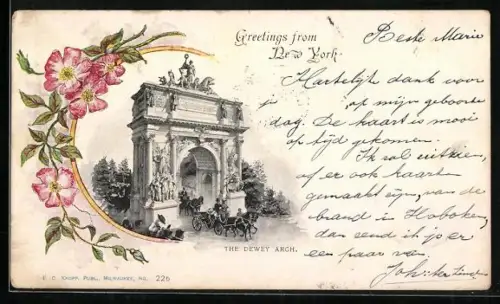 Greetings from
New York
Beste Marie
Hartelijk dank voor
op mijn geboorte
dag. De kaart is mooi
op tijd gekomen.
Ik zal uitkien,
of er ook kaarten
gemaakt zijn, van de
brand in Hoboken,
dan zend ik je er
een paar van.
THE DEWEY ARCH.
E. C. KROPP, PUBL., MILWAUKEE, NO. 226